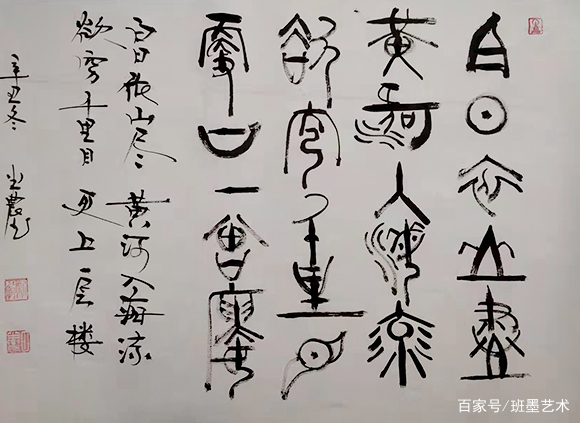 白日依山盡
黃河入海流
欲窮千里目
更上一層樓
白日依山尽 黄河入海流
欲穷千里目 更上一层楼
辛丑冬
百家号/班墨艺术